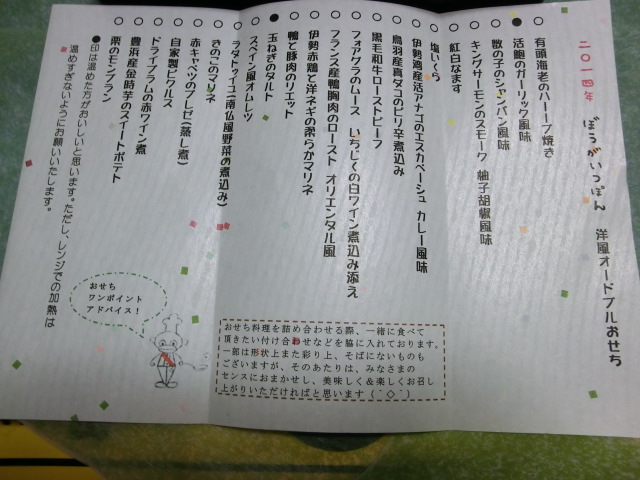 二〇一四年 ぼうがいっぽん 洋風オードブルおせち
○ 有頭海老のハーブ焼き
● 活鮑のガーリック風味
○ 数の子のシャンパン風味
○ キングサーモンのスモーク 柚子胡椒風味
○ 紅白なます
○ 塩いくら
○ 伊勢鴻産活アナゴのエスカベーシュ カレー風味
○ 鳥羽産真ダコのピリ辛煮込み
○ 黒毛和牛ローストビーフ
○ フォアグラのムース いちじくの白ワイン煮込み添え
○ フランス産鴨胸肉のロースト オリエンタル風
○ 伊勢赤鶏と洋ネギの柔らかマリネ
○ 鴨と豚肉のリエット
● 玉ねぎのタルト
○ スペイン風オムレツ
○ ラタトゥイユ(南仏風野菜の煮込み)
○ きのこのマリネ
○ 赤キャベツのブレゼ(蒸し煮)
○ 自家製ピクルス
○ ドライプラムの赤ワイン煮
○ 豊浜産金時芋のスイートポテト
○ 栗のモンブラン
●印は温めた方がおいしいと思います。ただし、レンジでの加熱は
温めすぎないようにお願いいたします。
おせち
ワンポイント
アドバイス！
おせち料理を詰め合わせる際、一緒に食べて
頂きたい付け合わせなどを脇に入れております。
一部は形状上また彩り上、そばにないものも
ございますが、そのあたりは、みなさまの
センスにおまかせし、美味しく＆楽しくお召し
上がりいただければと思います（＾◇＾）